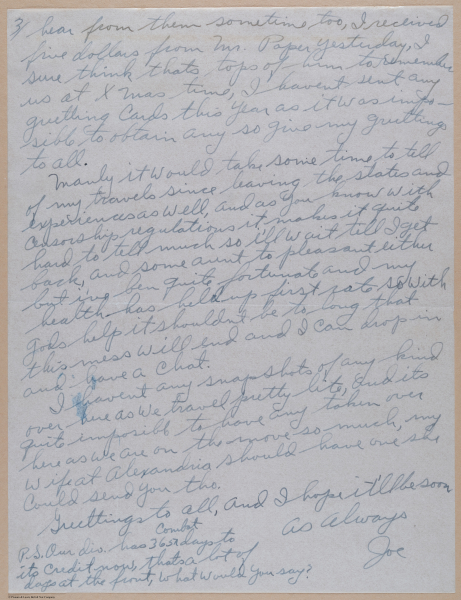 3/ hear from them sometime, too, I received
five dollars from Mr. Paper yesterday, I
sure think thats tops of him to remember
us at X mas time, I havent sent any
greetting Cards this Year as it was impo-
sible to obtain any so give my greetings
to all.
Manly it would take some time to tell
of my travels since leaving the states and
experiences as well, and as you know with
censorship regulations it makes it quite
hard to tell much so i'll wait till I get
back, and some arent to pleasant either
but i've ben quite fortunate and my
health has held up first rate so with
Gods help it shouldn't be to long that
this mess will end and I can drop in
and have a Chat.
I havent any snapshots of any kind
over here as we travel pretty lite, and its
quite imposibl to have any taken over
here as we are on the move so much, my
Wife at Alexandria should have one she
Could send you tho.
Greettings to all, and I hope it'll be soon
As Always
Joe
P.S. Our div. has 365 Combat days to
its Credit now, thats a lot of
days at the front, What Would You say?